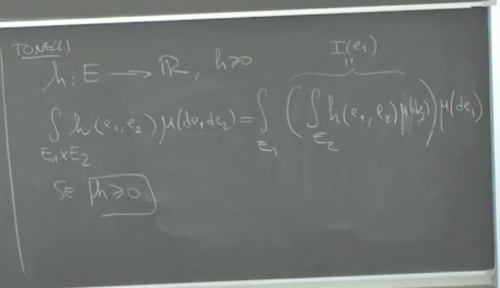 TONELLI
h: E → ℝ, h≥0
I(e₁)
∫_{E₁×E₂} h(e₁,e₂) μ(de₁de₂) = ∫_{E₁} ( ∫_{E₂} h(e₁,e₂) μ(de₂) ) μ(de₁)
SE h≥0